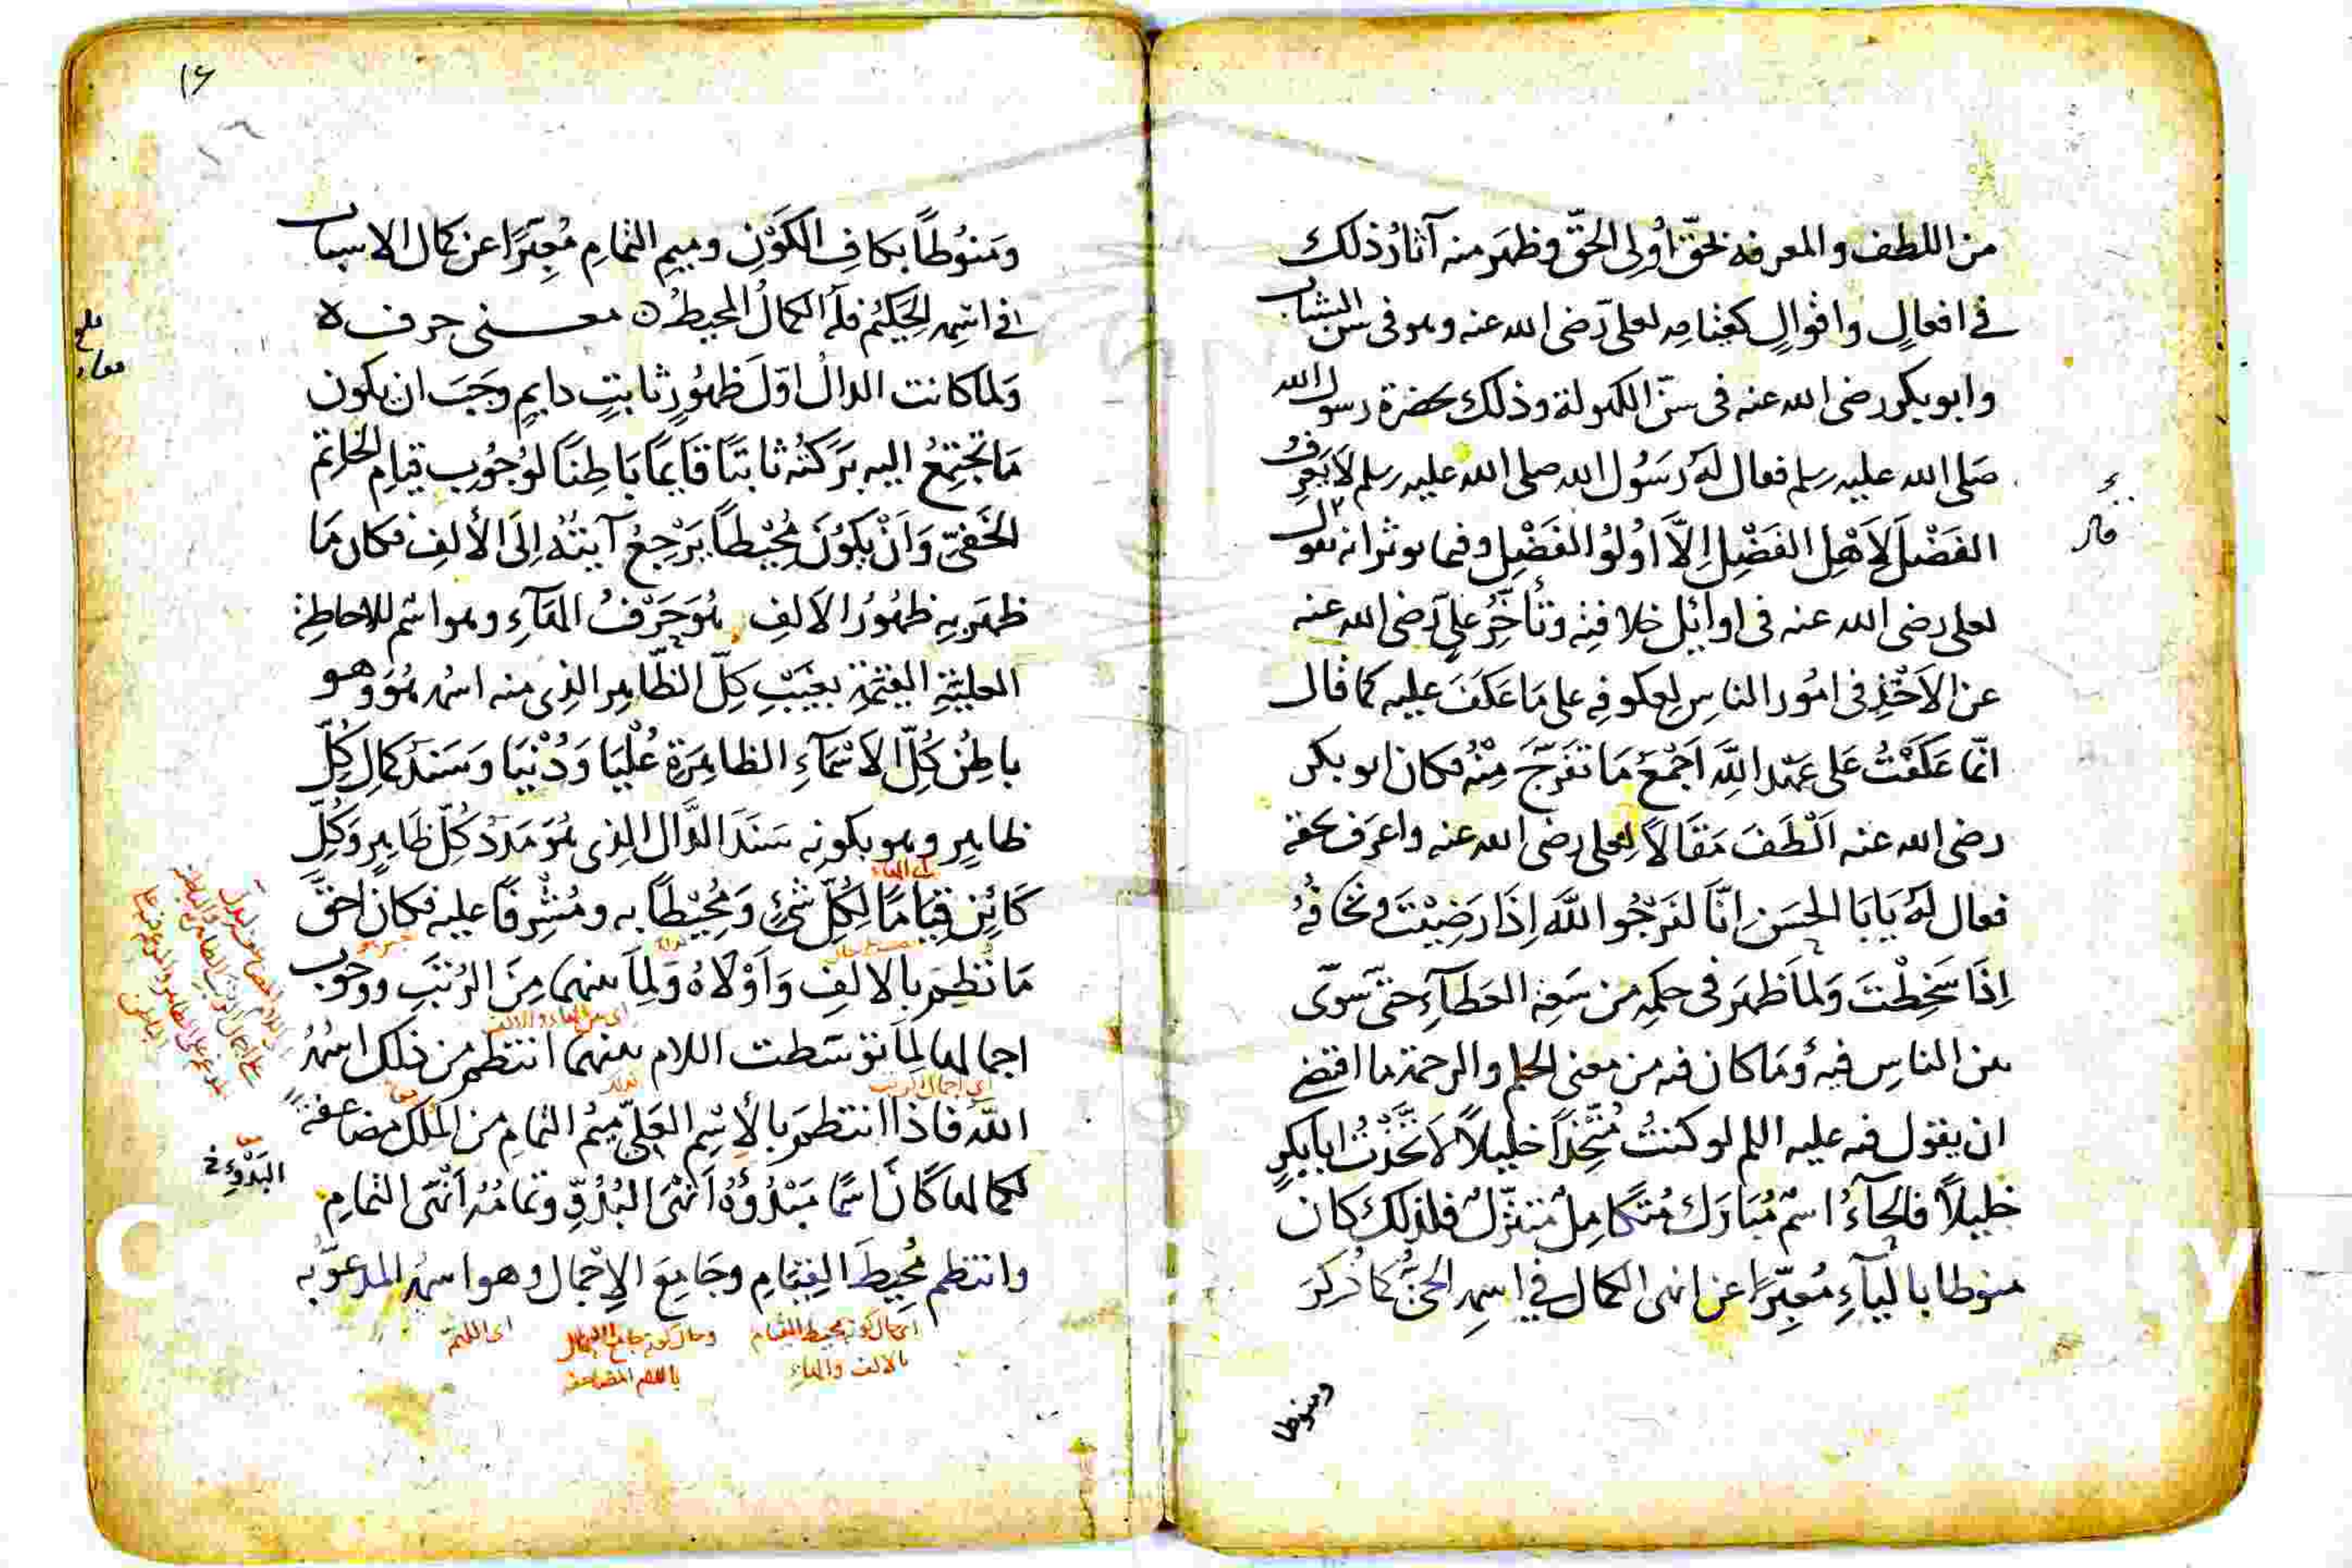 من اللطف والمعرفة بحق أولى الحق وظهر منه آثار ذلك
في افعال واقوال كقيامه لعلى رضى الله عنه وهو فى سن الشباب
وابو بكر رضى الله عنه فى سن الكهولة وذلك بحضرة رسول الله
صلى الله عليه وسلم فقال له رسول الله صلى الله عليه وسلم لا يعرف
الفضل لاهل الفضل الا اولوا الفضل وفيما يوثر انه يقول
لعلى رضى الله عنه فى اوائل خلافته وتأخر على رضى الله عنه
عن الاخذ فى امور الناس لعكوفه على ما عكف عليه كما قال
انما عكفت على عهد الله اجمع ما تفرج منه فكان ابو بكر
رضى الله عنه الطف مقالا لعلى رضى الله عنه واعرف بحقه
فقال له يا با الحسن انا لنرجوا الله اذا رضيت ونخافه
اذا سخطت ولما ظهر فى حكمه من سعة العطاء حتى سوى
بين الناس فيه وما كان فيه من معنى الحلم والرحمة ما اقتضى
ان يقول فيه عليه السلم لو كنت متخذا خليلا لاتخذت ابا بكر
خليلا فالحاء اسم مبارك متكامل متنزل فلذلك كان
منوطا بالياء معبرا عن انهى الكمال في اسمه الحي كما ذكر
ومنوطا
ومنوطا بكاف الكون وميم التمام معبرا عن كمال الاسباب
في اسمه الحكيم فله الكمال المحيط معنى حرف ه
ولما كانت الدال اول ظهور ثابت دايم وجب ان يكون
ما تجتمع اليه بركته ثابتا قايما باطنا لوجوب قيام الخاتم
الخفي وان يكون محيطا يرجع آيته إلى الألف فكان ما
ظهر به ظهور الالف هو حرف الهاء وهو اسم للاحاطة
العلية القيمة بغيب كل الظاهر الذى منه اسمه هو وهو
باطن كل الاسماء الظاهرة عليا ودنيا وسند كمال كل
ظاهر وهو بكونه سند الدال الذى هو مدد كل ظاهر وكل
كائن قياما لكل شئ ومحيطا به ومشرفا عليه فكان احق
ما نظم بالالف واولاه ولما بينهما من الرتب ووجوب
اجمالها لما توسطت اللام بينهما انتظم من ذلك اسمه
الله فاذا انتظم بالاسم العلى ميم التمام من الملك مضاعفة
لكمالها كان اسما مبدؤه انهى البدو وتمامه انهى التمام
وانتظم محيط القيام وجامع الاجمال وهو اسمه المدعو به
اى حال كونه محيط القيام
بالالف والهاء
وحال كونه جامع الاجمال
باللام المضاعفة
اى اللهم